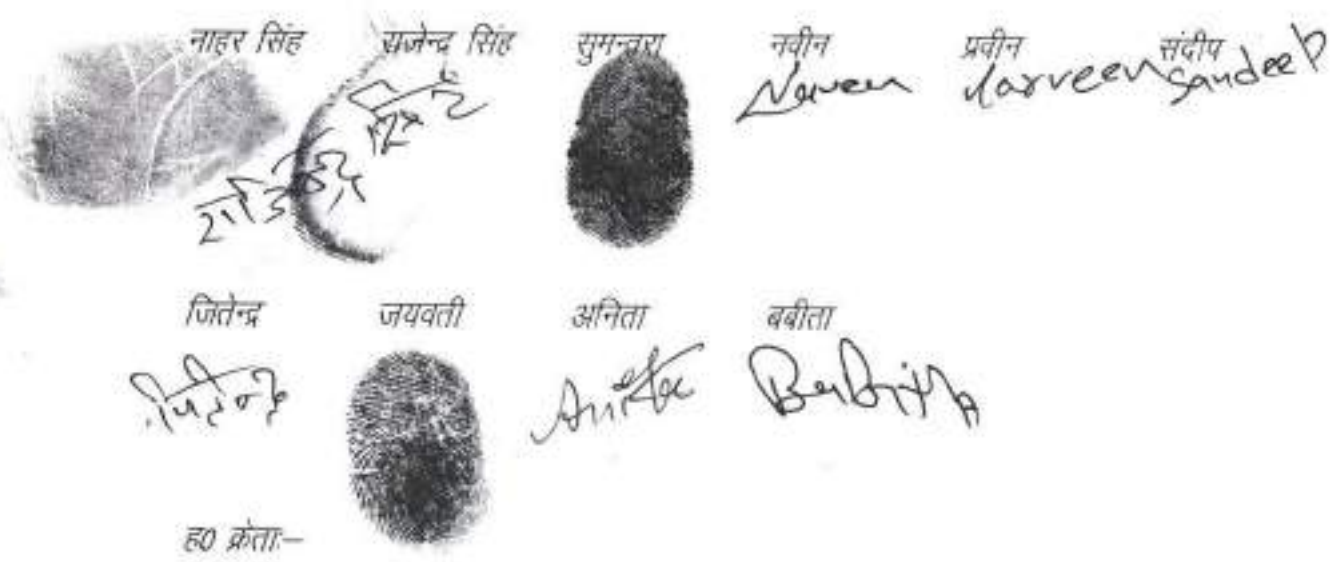 नाहर सिंह राजेन्द्र सिंह सुमन्तरा नवीन प्रवीन संदीप
Naveen Parveen Sandeep
जितेन्द्र जयवती अनिता बबीता
जितेन्द्र Anita Babita
ह0 क्रेताः–